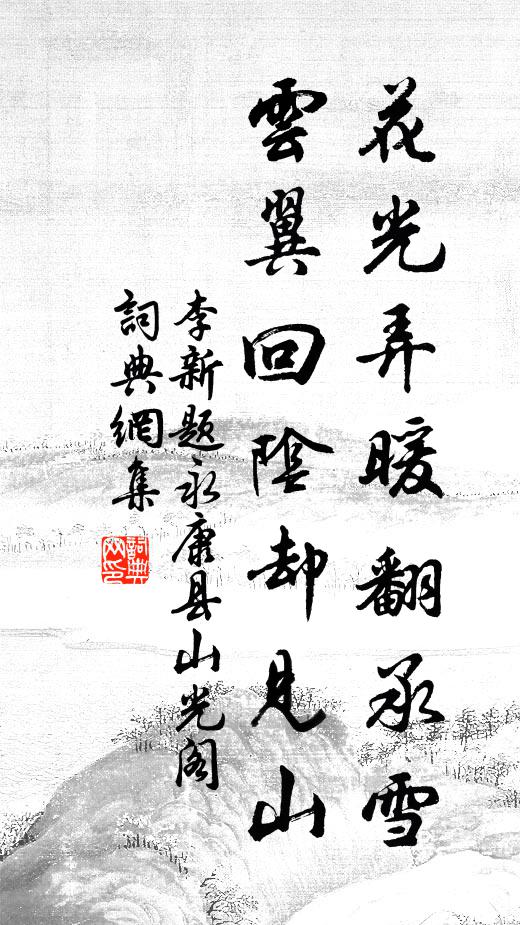 花光弄暖翻承雪
雲翼回陰却見山
李新题永康县山光阁
詞典網集
詞典网印